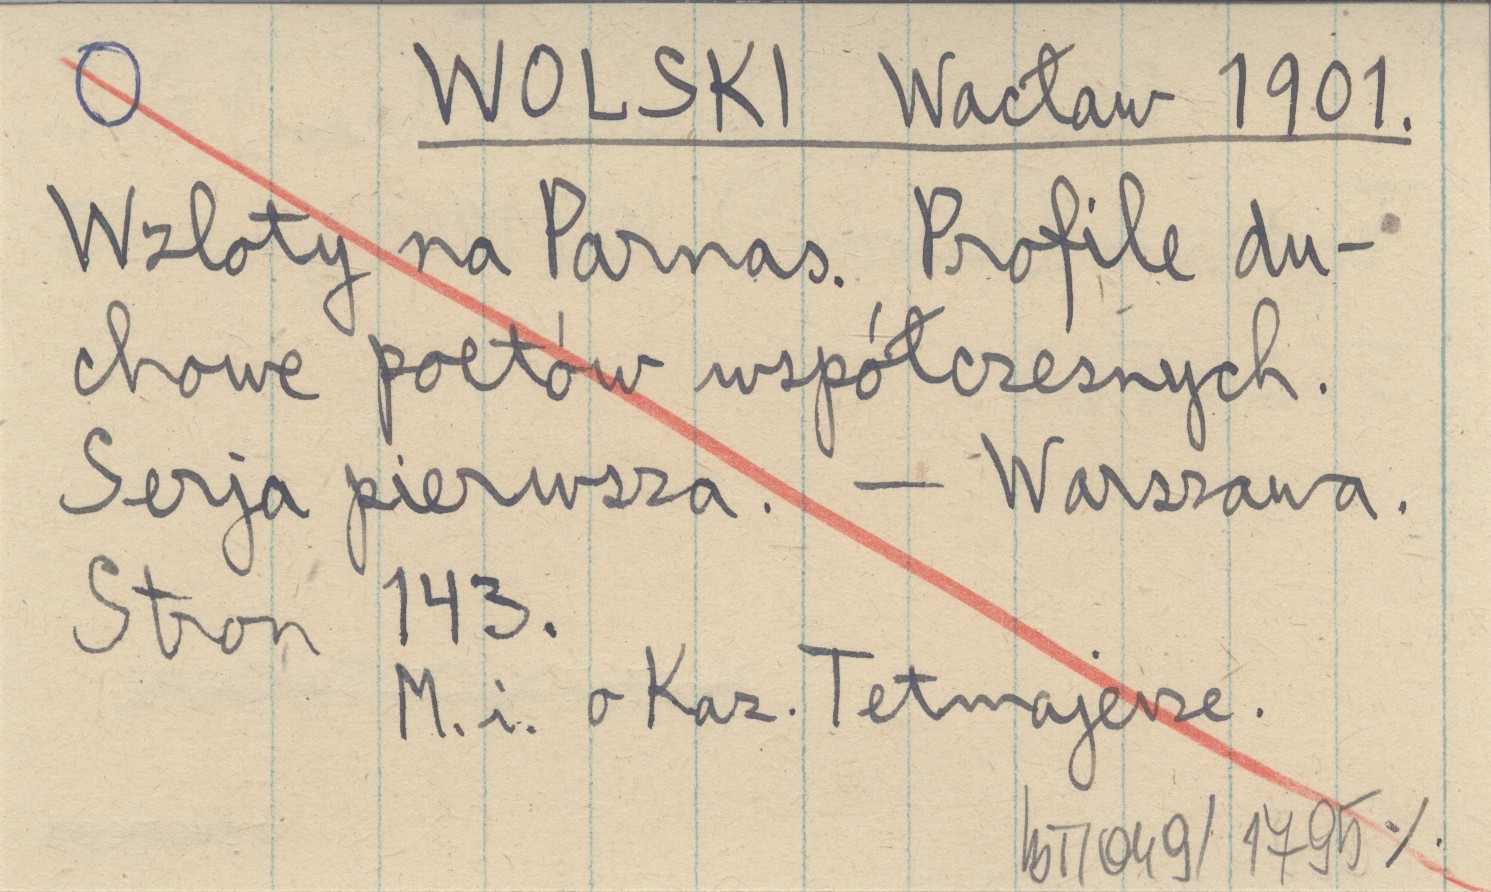 O WOLSKI Wacław 1901.
Wzloty na Parnas. Profile du-
chowe poetów współczesnych.
Serja pierwsza. — Warszawa.
Stron 143.
M. i. o Kaz. Tetmajerze.